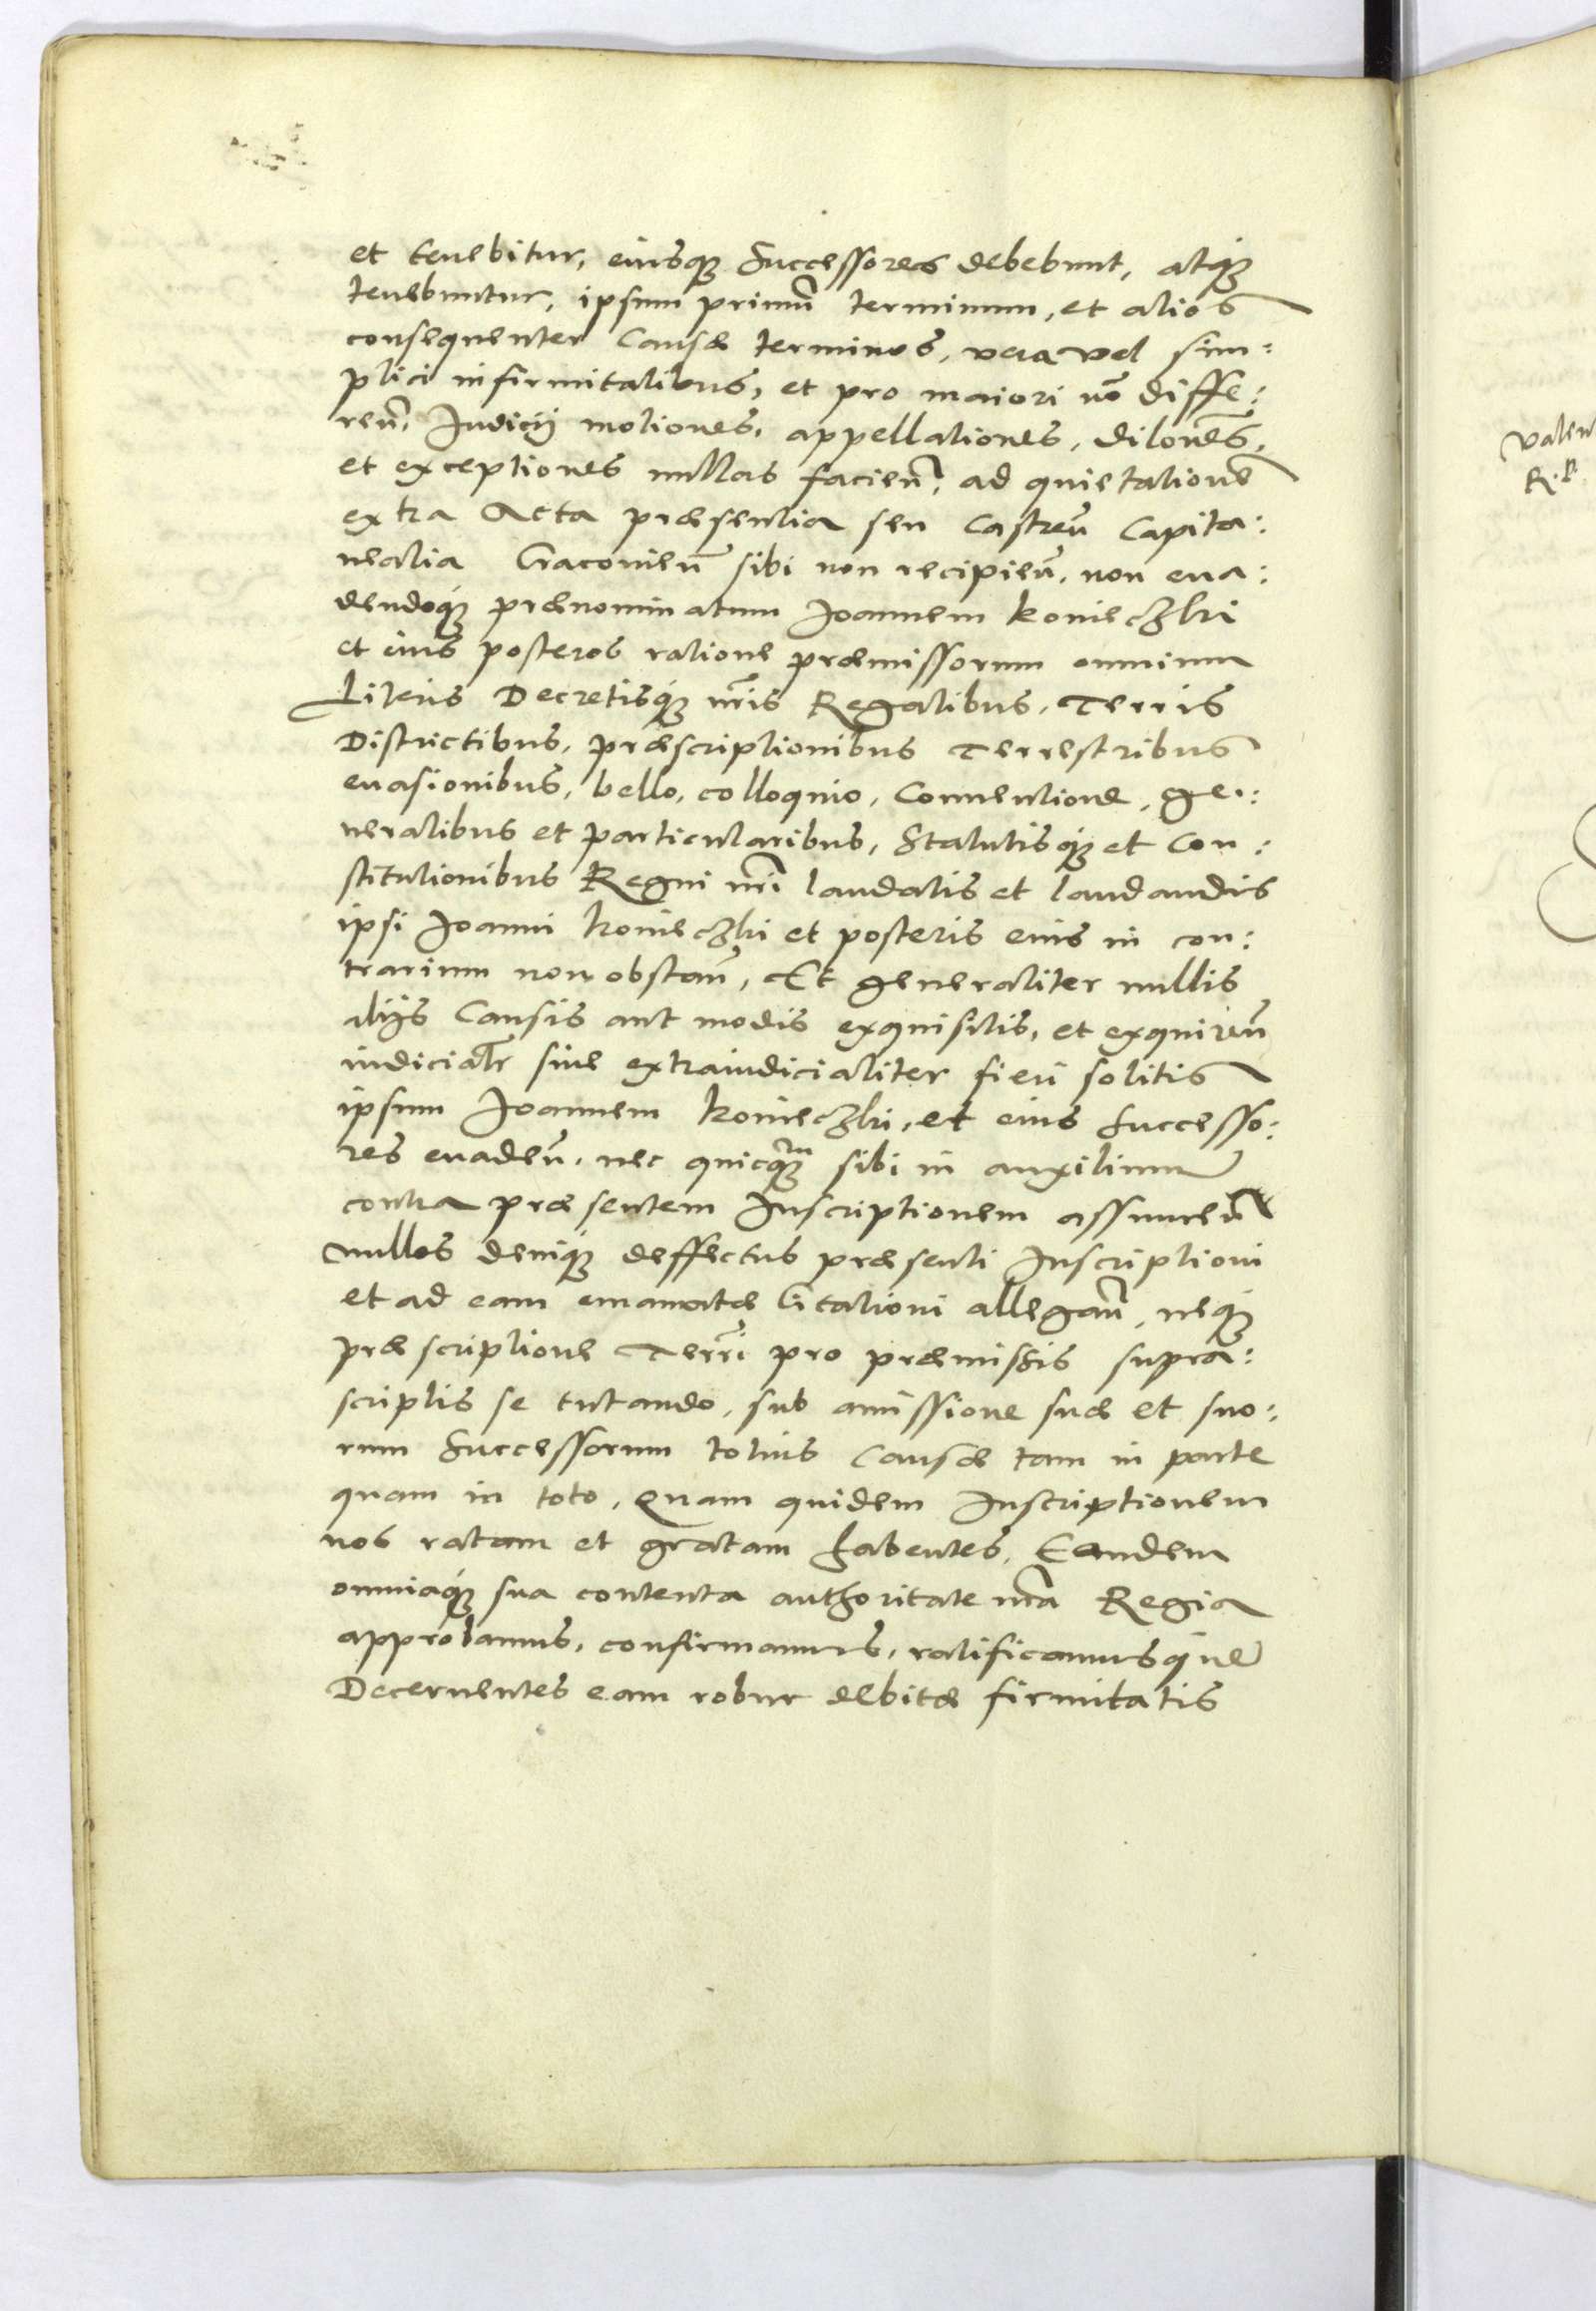 et tenebitur, eiusq́ꝫ Successores debebunt, atq́ꝫ
tenebuntur, ipsum primū terminum, et alios
consequenter Causæ terminos, vera vel sim:
plici infirmitatibus, et pro maiori nō diffe:
reñ, Iudicij motiones, appellationes, dilōnes,
et exceptiones nullas facieñ, ad quietationē
extra Acta præsentia seu Castreñ Capita:
nealia Cracovieñ sibi non recipieñ, non eua:
dendoq́ꝫ prænominatum Joannem konieczki
et eius posteros ratione præmissorum omnium
Literis Decretisq́ꝫ nr̃is Regalibus, Terris
Districtibus, præscriptionibus Terrestribus
euasionibus, bello, colloquio, Conuentione, ge:
neralibus et particularibus, Statutisq́ꝫ et Con:
stitutionibus Regni nr̃i laudatis et laudandis
ipsi Joanni konieczki et posteris eius in con:
trarium non obstañ, Et generaliter nullis
alijs Causis aut modis exquisitis, et exquireñ
iudicialr̃ siue extraiudicialiter fieri solitis
ipsum Joannem konieczki, et eius Successo:
res euadeñ, nec quicq̃ꝫ sibi in auxilium
contra præsentem Inscriptionem assumeñ
nullos deniq́ꝫ deffectus præsenti Inscriptioni
et ad eam emanatæ Citationi allegañ, neq́ꝫ
præscriptione Terrī pro præmissis supra:
scriptis se tutando, sub amissione suæ et suo:
rum Successorum totius Causæ tam in parte
quam in toto, Quam quidem Inscriptionem
nos ratam et gratam habentes, Eandem
omniaq́ꝫ sua contenta authoritate nr̃a Regia
approbamus, confirmamus, ratificamusq́ue
Decernentes eam robur debitæ firmitatis